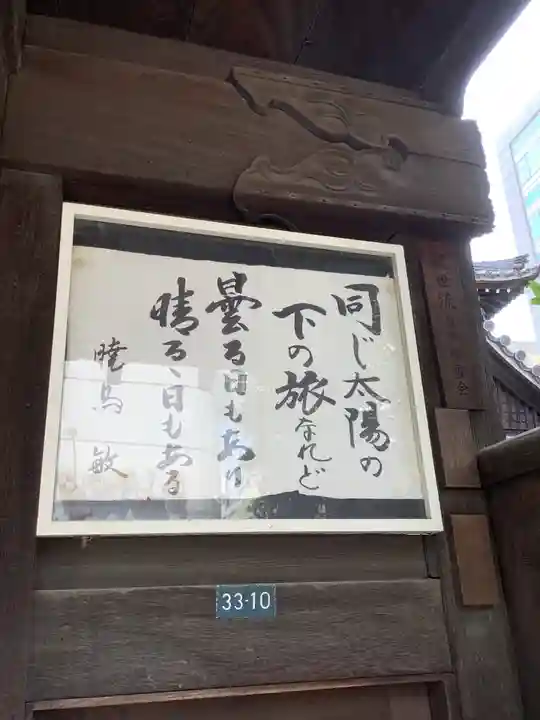 同じ太陽の
下の旅なれど
曇る日もあり
晴る、日もある
暁烏敏
33-10